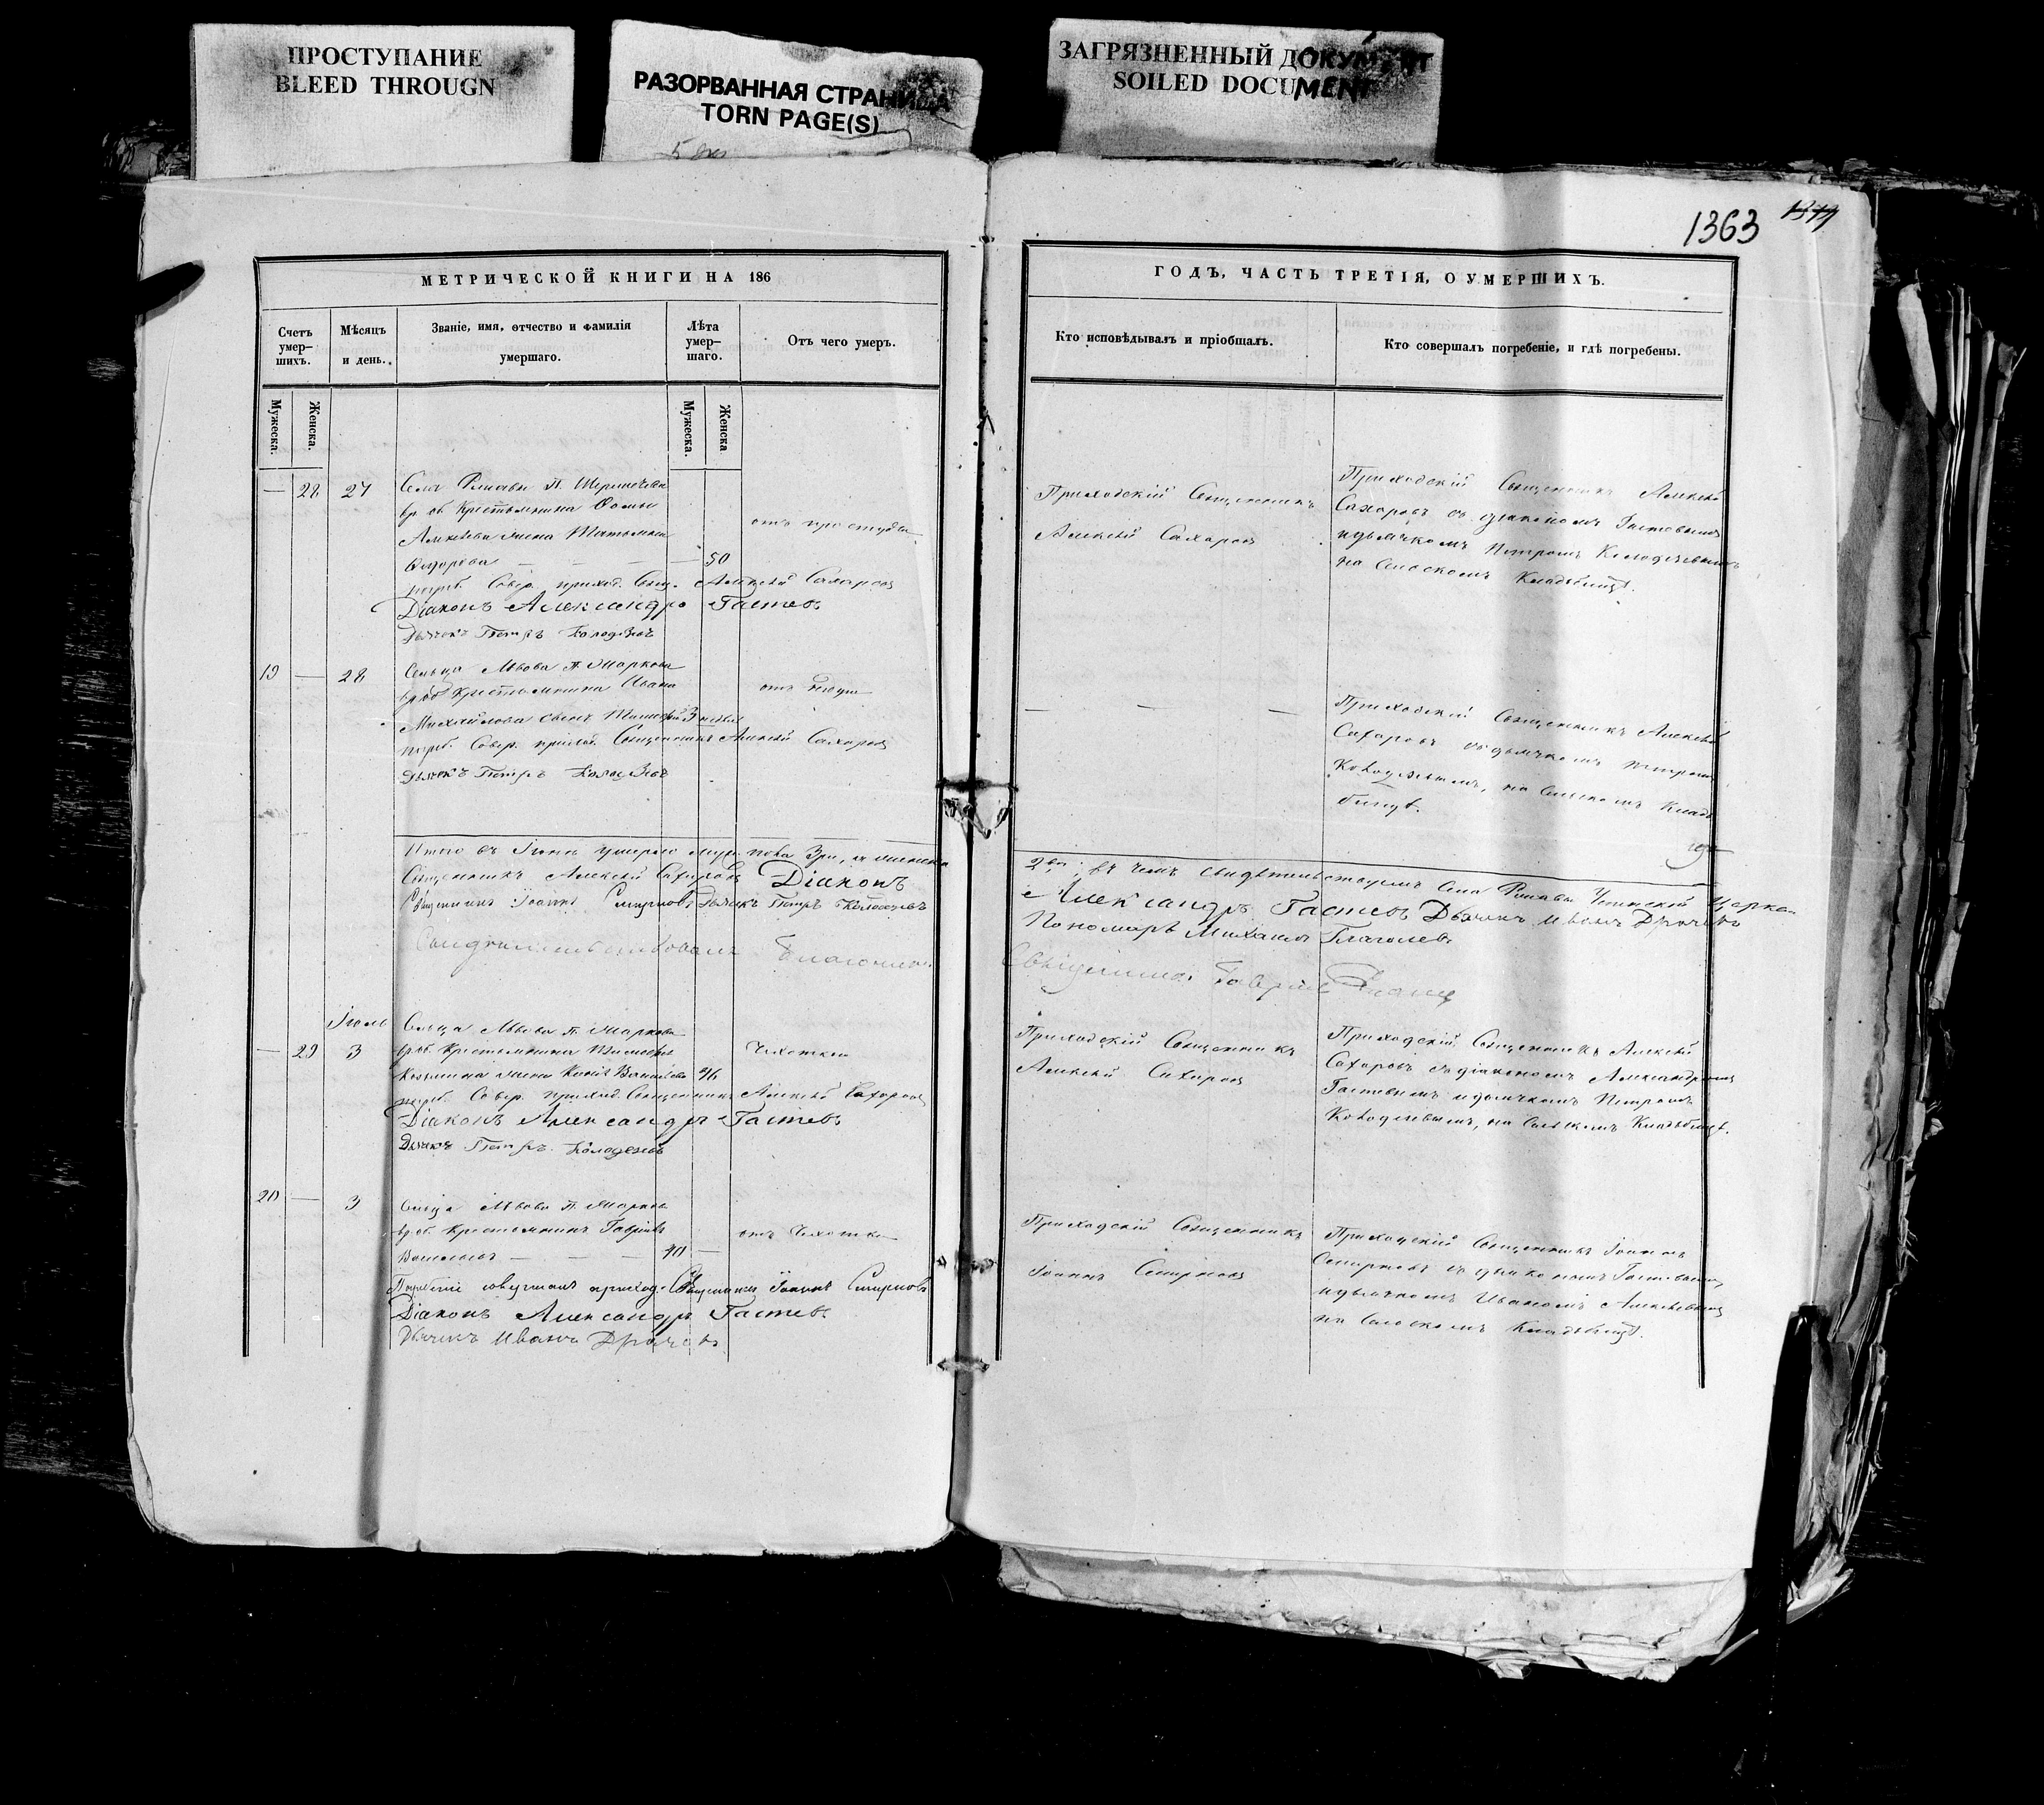 ПРОСТУПАНИЕ
BLEED THROUGN
РАЗОРВАННАЯ СТРАНИЦА
TORN PAGE(S)
ЗАГРЯЗНЕННЫЙ ДОКУМЕНТ
SOILED DOCUMENT
1363
МЕТРИЧЕСКОЙ КНИГИ НА 186
Счетъ умер– шихъ.
Мѣсяцъ и день.
Званіе, имя, отчество и фамилія умершаго.
Лѣта умер– шаго.
Отъ чего умеръ.
Мужеска.
Женска.
Мужеска.
Женска
— 28 27
Села П.
вр. об. Крестьянина Ѳомы
Алексѣева жена Татьяна
Ѳедорова — — — — 50
отъ простуды
погреб. Совер. приход. Свящ. Алексѣй Сахаровъ
Діаконъ Александръ Гастевъ
Дьячекъ Петръ Колодезевъ
19 — 28
Сельца Львова П. Маркова
вр. об. Крестьянина Ивана
Михайлова сынъ 3 недѣл
отъ
погреб. Совер. приход. Священникъ Алексѣй Сахаровъ
Дьячекъ Петръ Колодезевъ
Итого въ Іюнѣ умерло муж. пола 3ри, а женска
Священникъ Алексѣй Сахаровъ Діаконъ
Священникъ Іоаннъ Смирновъ Дьячекъ Петръ Колодезевъ
Свидѣтельствовалъ Благочин.
Іюль
— 29 3
Сельца Львова П. Маркова
вр. об. Крестьянина Тимофея
Козьмина жена Васильева 46
Чихотки
погреб. Совер. приход. Священникъ Алексѣй Сахаровъ
Діаконъ Александръ Гастевъ
Дьячекъ Петръ Колодезевъ
20 — 3
Сельца Львова П. Маркова
вр. об. Крестьянинъ Гавріилъ
Васильевъ — — — 40 —
отъ Чихотки
Погребеніе совершалъ приход. Священникъ Іоаннъ Смирновъ
Діаконъ Александръ Гастевъ
Дьячекъ Иванъ
ГОДЪ, ЧАСТЬ ТРЕТІЯ, О УМЕРШИХЪ.
Кто исповѣдывалъ и пріобшалъ.
Кто совершалъ погребеніе, и гдѣ погребены.
Приходскій Священникъ
Алексѣй Сахаровъ
Приходскій Священникъ Алексѣй
Сахаровъ съ діакономъ Гастевымъ
и дьячкомъ Петромъ Колодезевымъ
на Сельскомъ Кладбищѣ.
— — —
Приходскій Священникъ Алексѣй
Сахаровъ съ дьячкомъ Петромъ
Колодезевымъ, на Сельскомъ Клад-
бищѣ.
въ чемъ свидѣтельствуемъ Села Успенской Церкви
Александръ Гастевъ Дьячекъ Иванъ
Пономарь Михаилъ Глаголевъ
Священникъ Гавріилъ
Приходскій Священникъ
Алексѣй Сахаровъ
Приходскій Священникъ Алексѣй
Сахаровъ съ діакономъ Александромъ
Гастевымъ и дьячкомъ Петромъ
Колодезевымъ, на Сельскомъ Кладбищѣ.
Приходскій Священникъ
Іоаннъ Смирновъ
Приходскій Священникъ Іоаннъ
Смирновъ съ діакономъ Гастевымъ
и дьячкомъ Иваномъ Алексѣевымъ
на Сельскомъ Кладбищѣ.